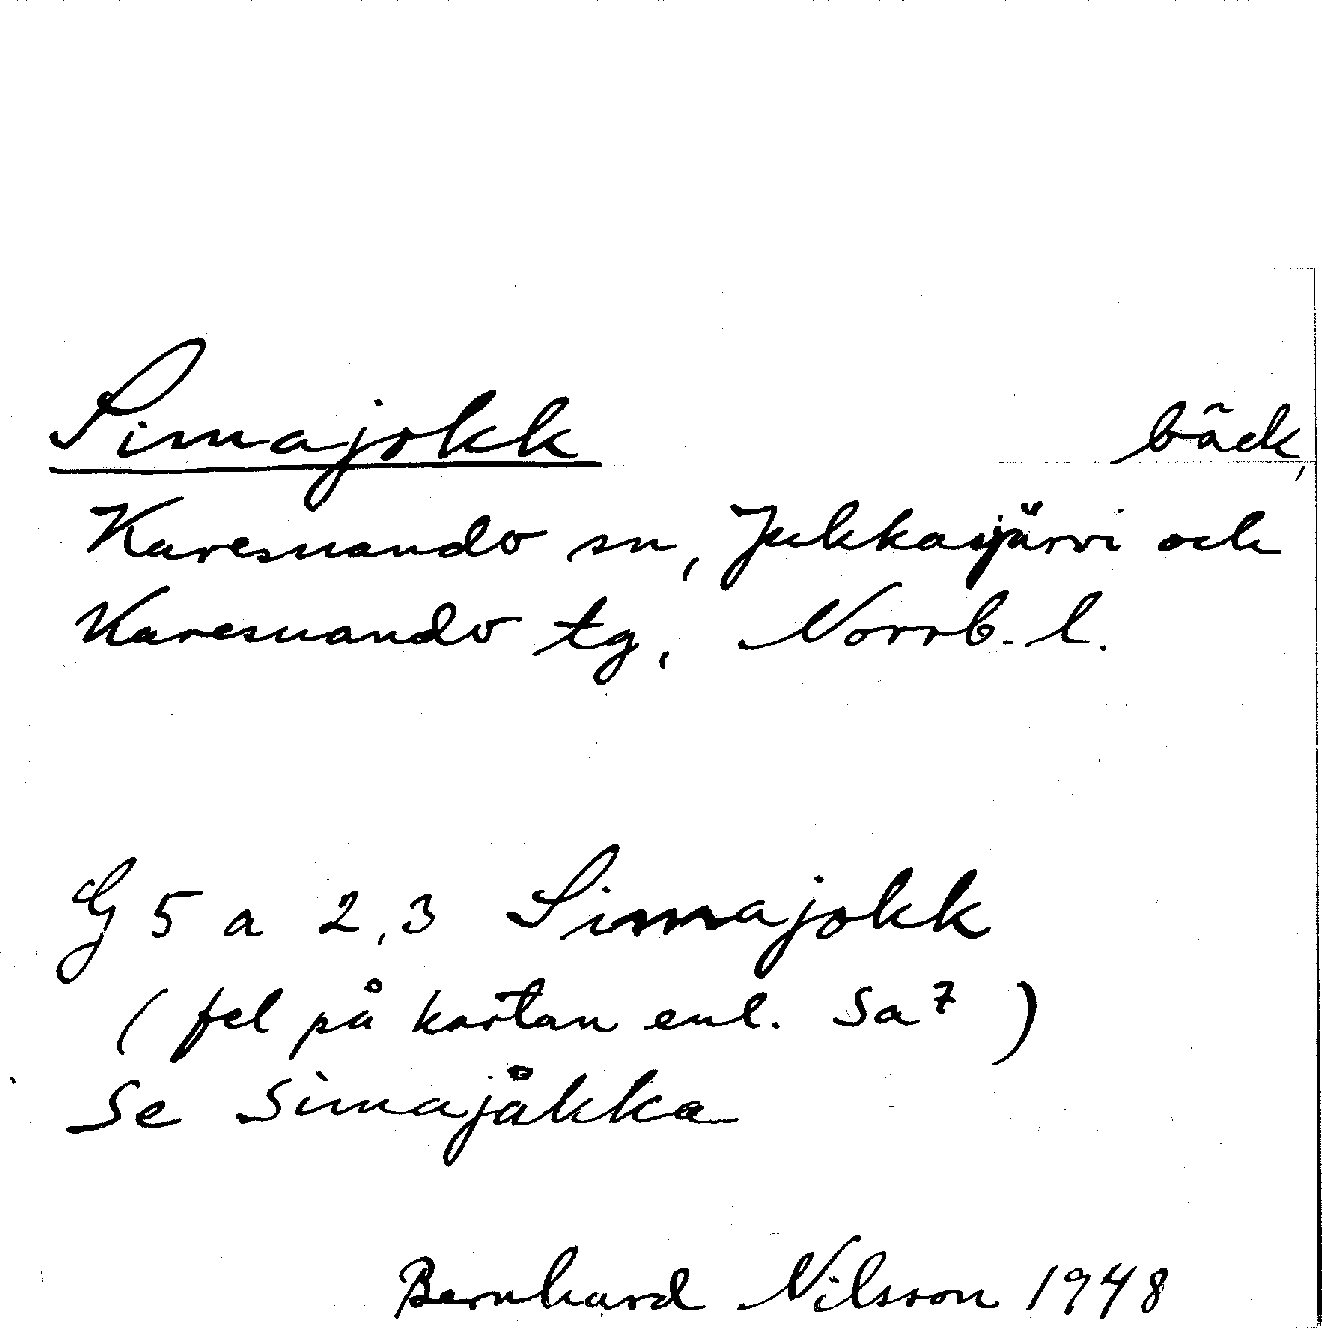 Simajokk bäck,
Karesuando sn, Jukkasjärvi och
Karesuando tg, Norrb. l.
G 5 a 2,3 Simajokk
(fel på kartan enl. Sa 7)
Se Simajåkka
Bernhard Nilsson 1948